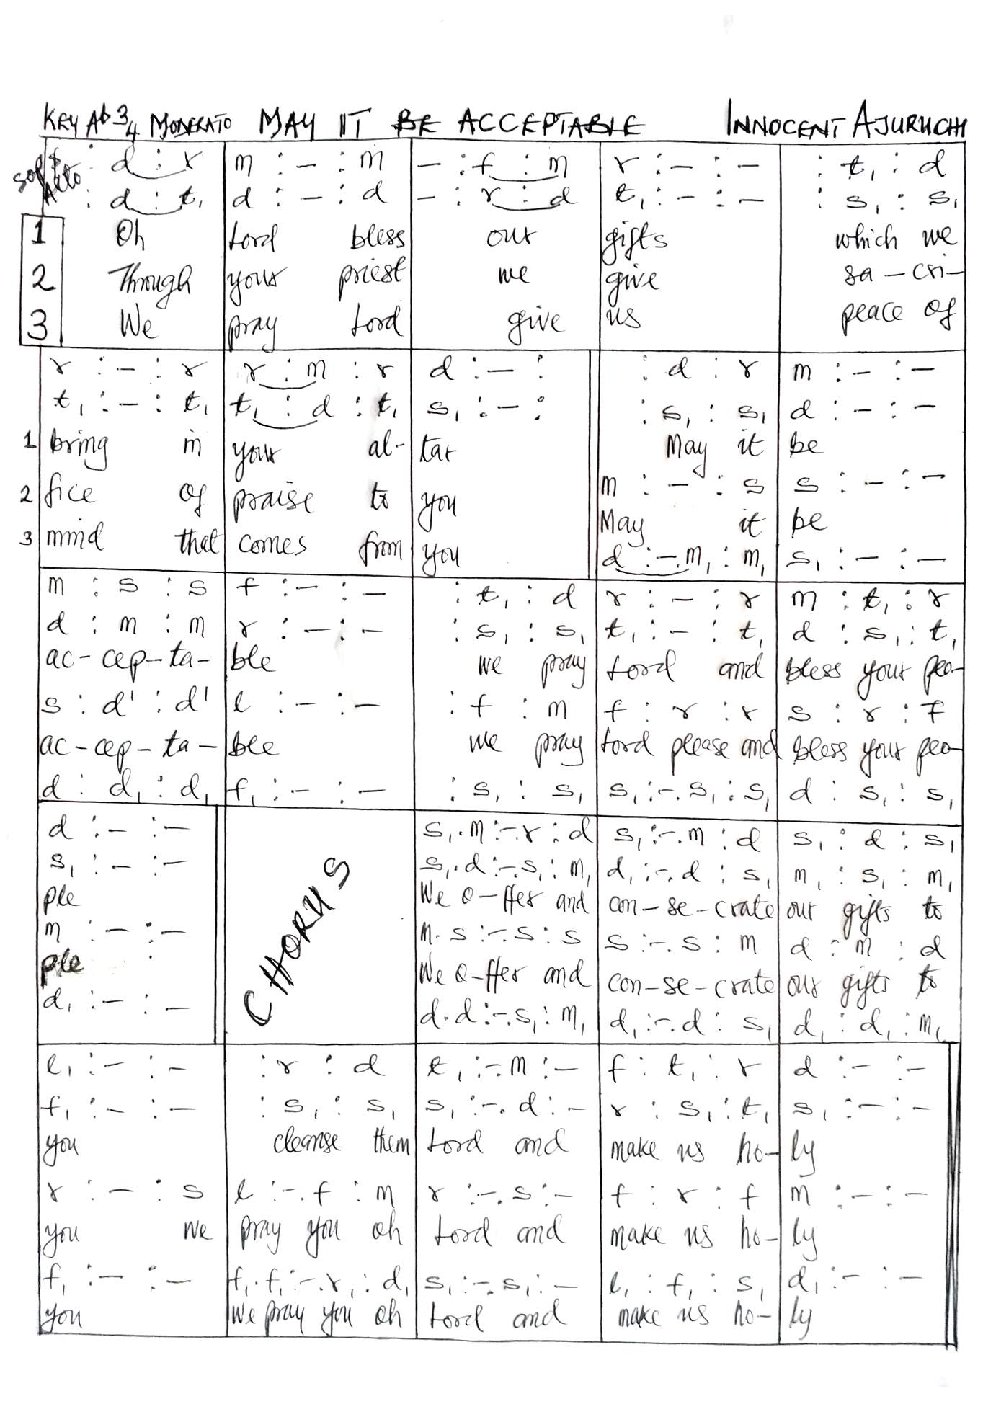 KEY Ab 3/4 MODERATO MAY IT BE ACCEPTABLE INNOCENT AJURUCHI
Sop : d : r | m : – : m | – : f : m | r : – : – | : t₁ : d
Alto : d : t₁ | d : – : d | – : r : d | t₁ : – : – | : s₁ : s₁
1 Oh Lord bless our gifts which we
2 Through your priest we give sa–cri–
3 We pray Lord give us peace of
r : – : r | r : m : r | d : – : | : d : r | m : – : –
t₁ : – : t₁ | t₁ : d : t₁ | s₁ : – : | : s₁ : s₁ | d : – : –
1 bring in your al-tar May it be
m : – : s | s : – : –
2 fice of praise to you May it be
3 mind that comes from you d : –.m₁ : m₁ | s₁ : – : –
m : s : s | f : – : – | : t₁ : d | r : – : r | m : t₁ : r
d : m : m | r : – : – | : s₁ : s₁ | t₁ : – : t₁ | d : s₁ : t₁
ac–cep–ta–ble we pray Lord and bless your peo–
s : d' : d' | l : – : – | : f : m | f : r : r | s : r : f
ac–cep–ta–ble we pray Lord please and bless your peo–
d : d₁ : d₁ | f₁ : – : – | : s₁ : s₁ | s₁ : –.s₁ : s₁ | d : s₁ : s₁
d : – : – | CHORUS | s₁.m : –.r : d | s₁ : –.m : d | s₁ : d : s₁
s₁ : – : – | s₁.d : –.s₁ : m₁ | d₁ : –.d : s₁ | m₁ : s₁ : m₁
ple We o–ffer and con–se–crate our gifts to
m : – : – | m.s : –.s : s | s : –.s : m | d : m : d
ple We o–ffer and con–se–crate our gifts to
d₁ : – : – | d.d : –.s₁ : m₁ | d₁ : –.d : s₁ | d₁ : d₁ : m₁
l₁ : – : – | : r : d | t₁ : –.m : – | f : t₁ : r | d : – : –
f₁ : – : – | : s₁ : s₁ | s₁ : –.d : – | r : s₁ : t₁ | s₁ : – : –
you cleanse them Lord and make us ho–ly
r : – : s | l : –.f : m | r : –.s : – | f : r : f | m : – : –
you we pray you oh Lord and make us ho–ly
f₁ : – : – | f₁.f₁ : –.r₁ : d₁ | s₁ : –.s₁ : – | l₁ : f₁ : s₁ | d₁ : – : –
you We pray you oh Lord and make us ho–ly